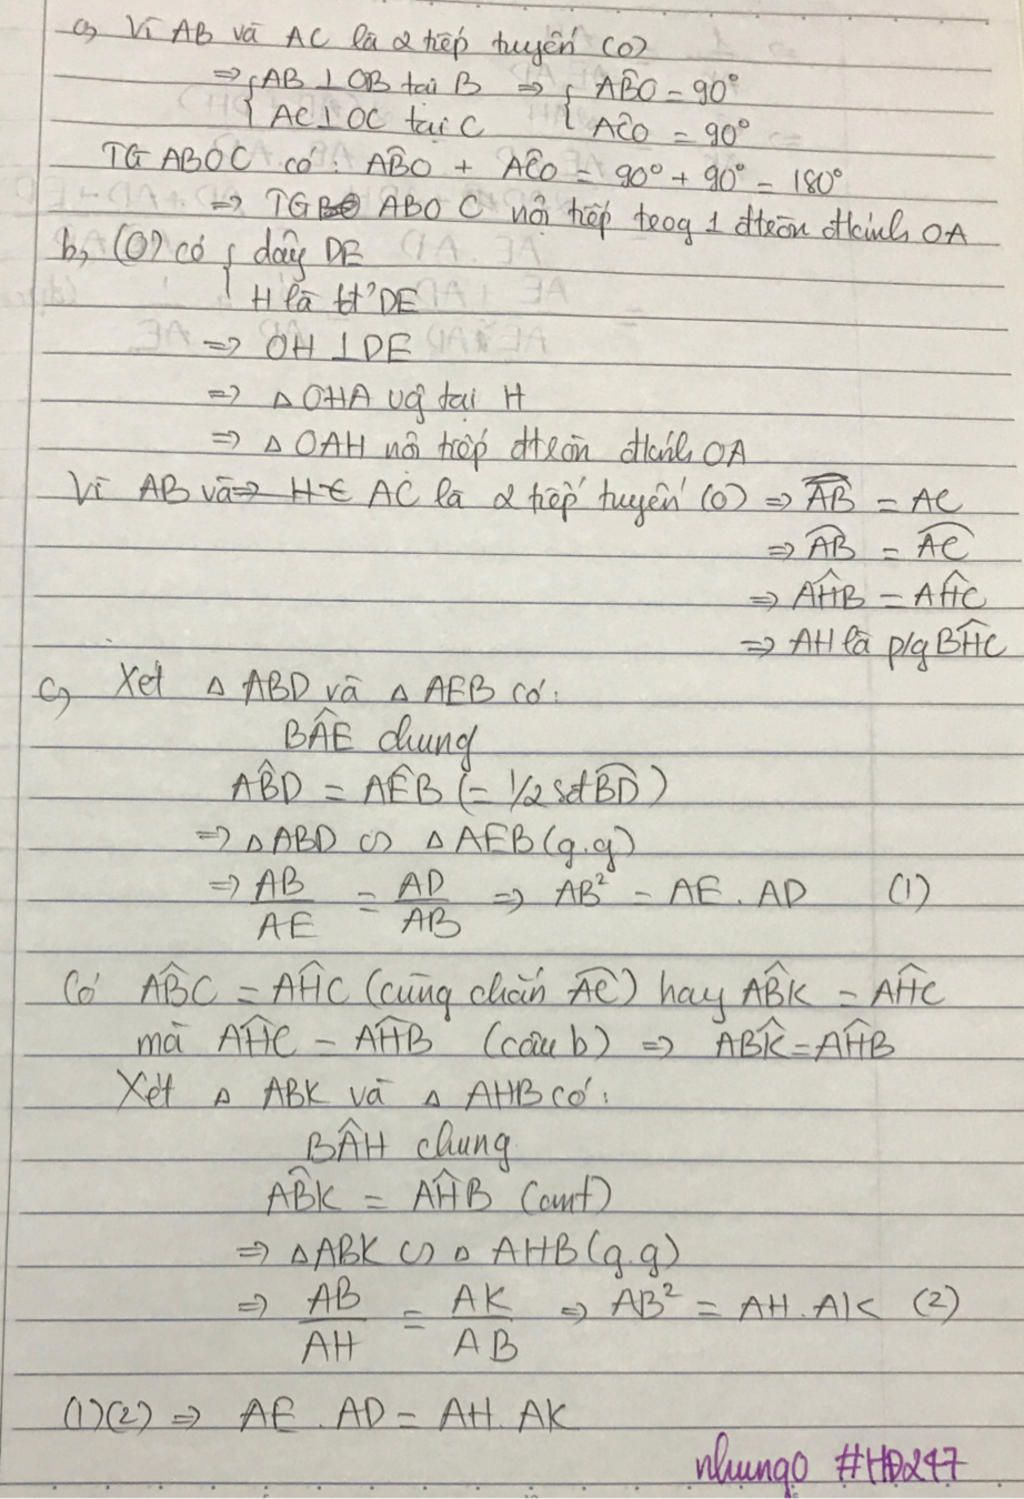 a, Vì AB và AC là 2 tiếp tuyến (O)
=> { AB ⊥ OB tại B => { AB̂O = 90°
{ AC ⊥ OC tại C { AĈO = 90°
TG ABOC có: AB̂O + AĈO = 90° + 90° = 180°
=> TG ABOC nội tiếp trog 1 đtròn đkính OA
b, (O) có { dây DE
{ H là tđ' DE
=> OH ⊥ DE
=> △ OHA vg tại H
=> △ OAH nội tiếp đtròn đkính OA
Vì AB và AC là 2 tiếp tuyến (O) => AB = AC
=> A͡B = A͡C
=> AĤB = AĤC
=> AH là p/g BĤC
c, Xét △ ABD và △ AEB có:
BÂE chung
AB̂D = AÊB (= 1/2 sđ B͡D)
=> △ABD ∽ △ AEB (g.g)
=> AB/AE = AD/AB => AB² = AE . AD (1)
Có AB̂C = AĤC (cùng chắn A͡C) hay AB̂K = AĤC
mà AĤC = AĤB (câu b) => AB̂K = AĤB
Xét △ ABK và △ AHB có:
BÂH chung
AB̂K = AĤB (cmt)
=> △ABK ∽ △ AHB (g.g)
=> AB/AH = AK/AB => AB² = AH . AK (2)
(1)(2) => AE . AD = AH . AK
nhung0 #HD247